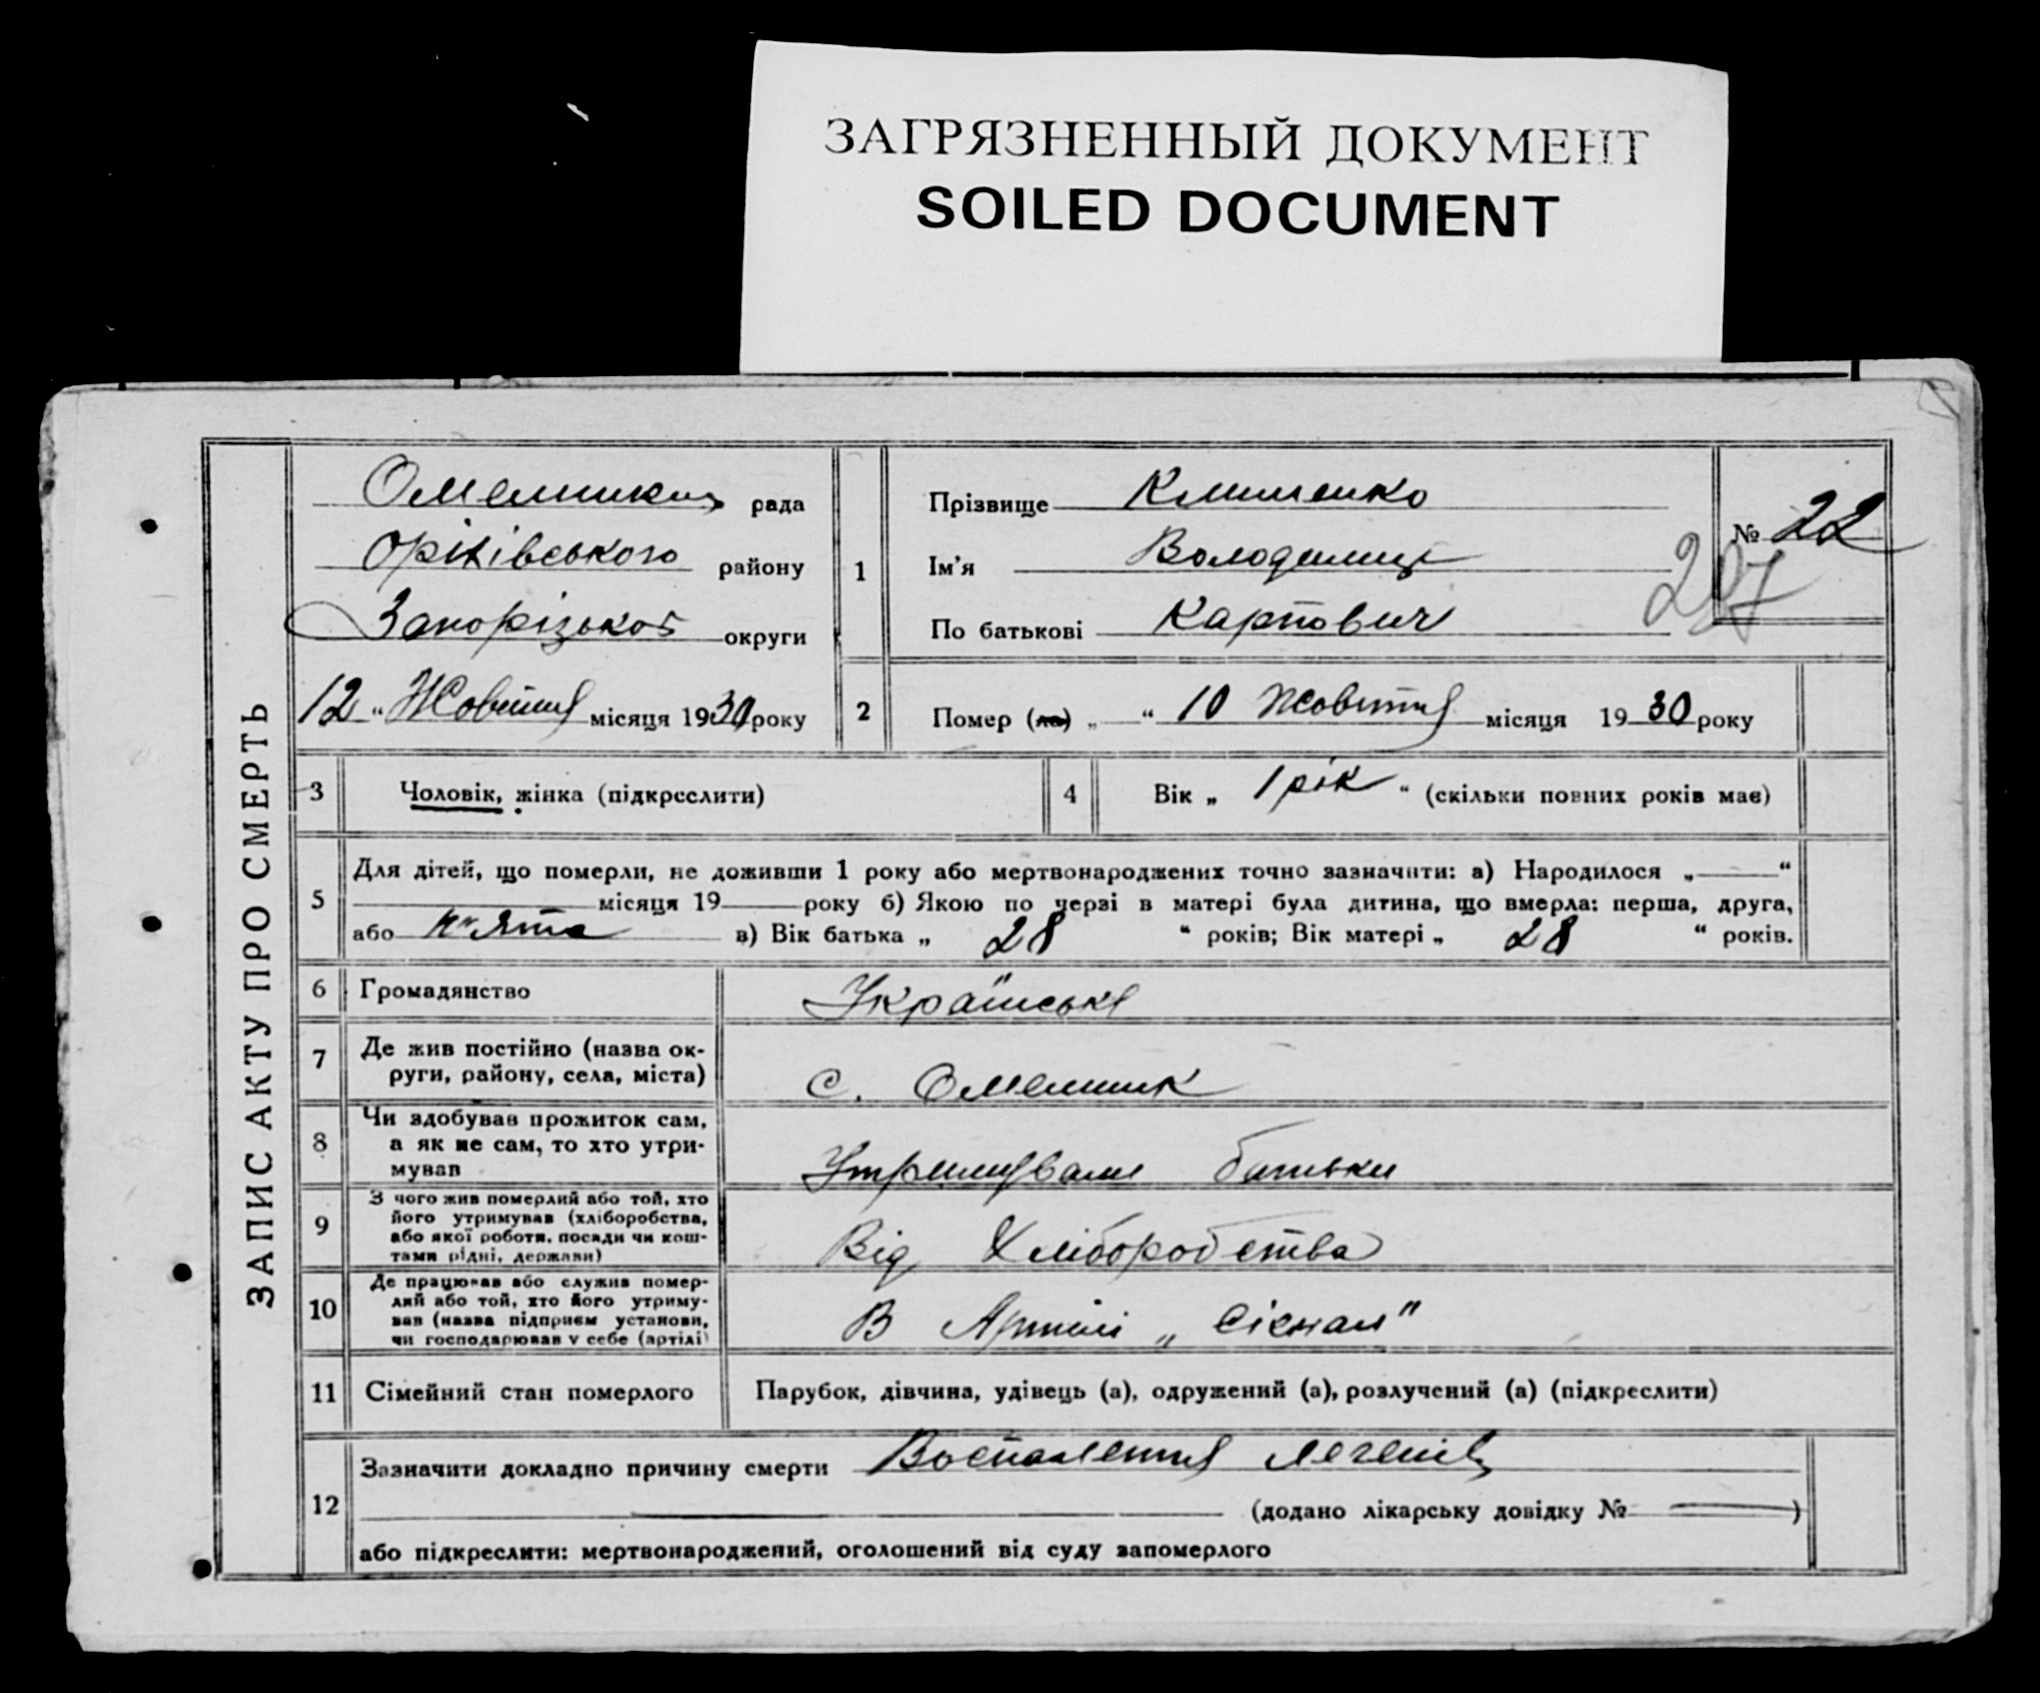 ЗАГРЯЗНЕННЫЙ ДОКУМЕНТ
SOILED DOCUMENT
ЗАПИС АКТУ ПРО СМЕРТЬ
рада
Оріхівського району
Запорізької округи
12 " Жовтня місяця 1930 року
1
Прізвище Клименко
Ім'я Володимир
По батькові Карпович
№ 22
207
2
Помер (ла) „ — " 10 Жовтня місяця 1930 року
3 Чоловік, жінка (підкреслити)
4 Вік „ 1 рік " (скільки повних років має)
5 Для дітей, що померли, не доживши 1 року або мертвонароджених точно зазначити: а) Народилося „ — "
місяця 19 — року б) Якою по черзі в матері була дитина, що вмерла: перша, друга,
або п'ята в) Вік батька „ 28 " років; Вік матері „ 28 " років.
6 Громадянство Українське
7 Де жив постійно (назва ок-
руги, району, села, міста)
с. Омельник
8 Чи здобував прожиток сам,
а як не сам, то хто утри-
мував
Утримували батьки
9 З чого жив померлий або той, хто
його утримував (хліборобства,
або якої роботи, посади чи кош-
тами рідні, держави)
Від Хліборобства
10 Де працював або служив помер-
лий або той, хто його утриму-
вав (назва підприєм установи,
чи господарював у себе (артілі)
В Артілі „Сігнал"
11 Сімейний стан померлого Парубок, дівчина, удівець (а), одружений (а), розлучений (а) (підкреслити)
12 Зазначити докладно причину смерти Воспаления легенів
(додано лікарську довідку № — )
або підкреслити: мертвонароджений, оголошений від суду запомерлого